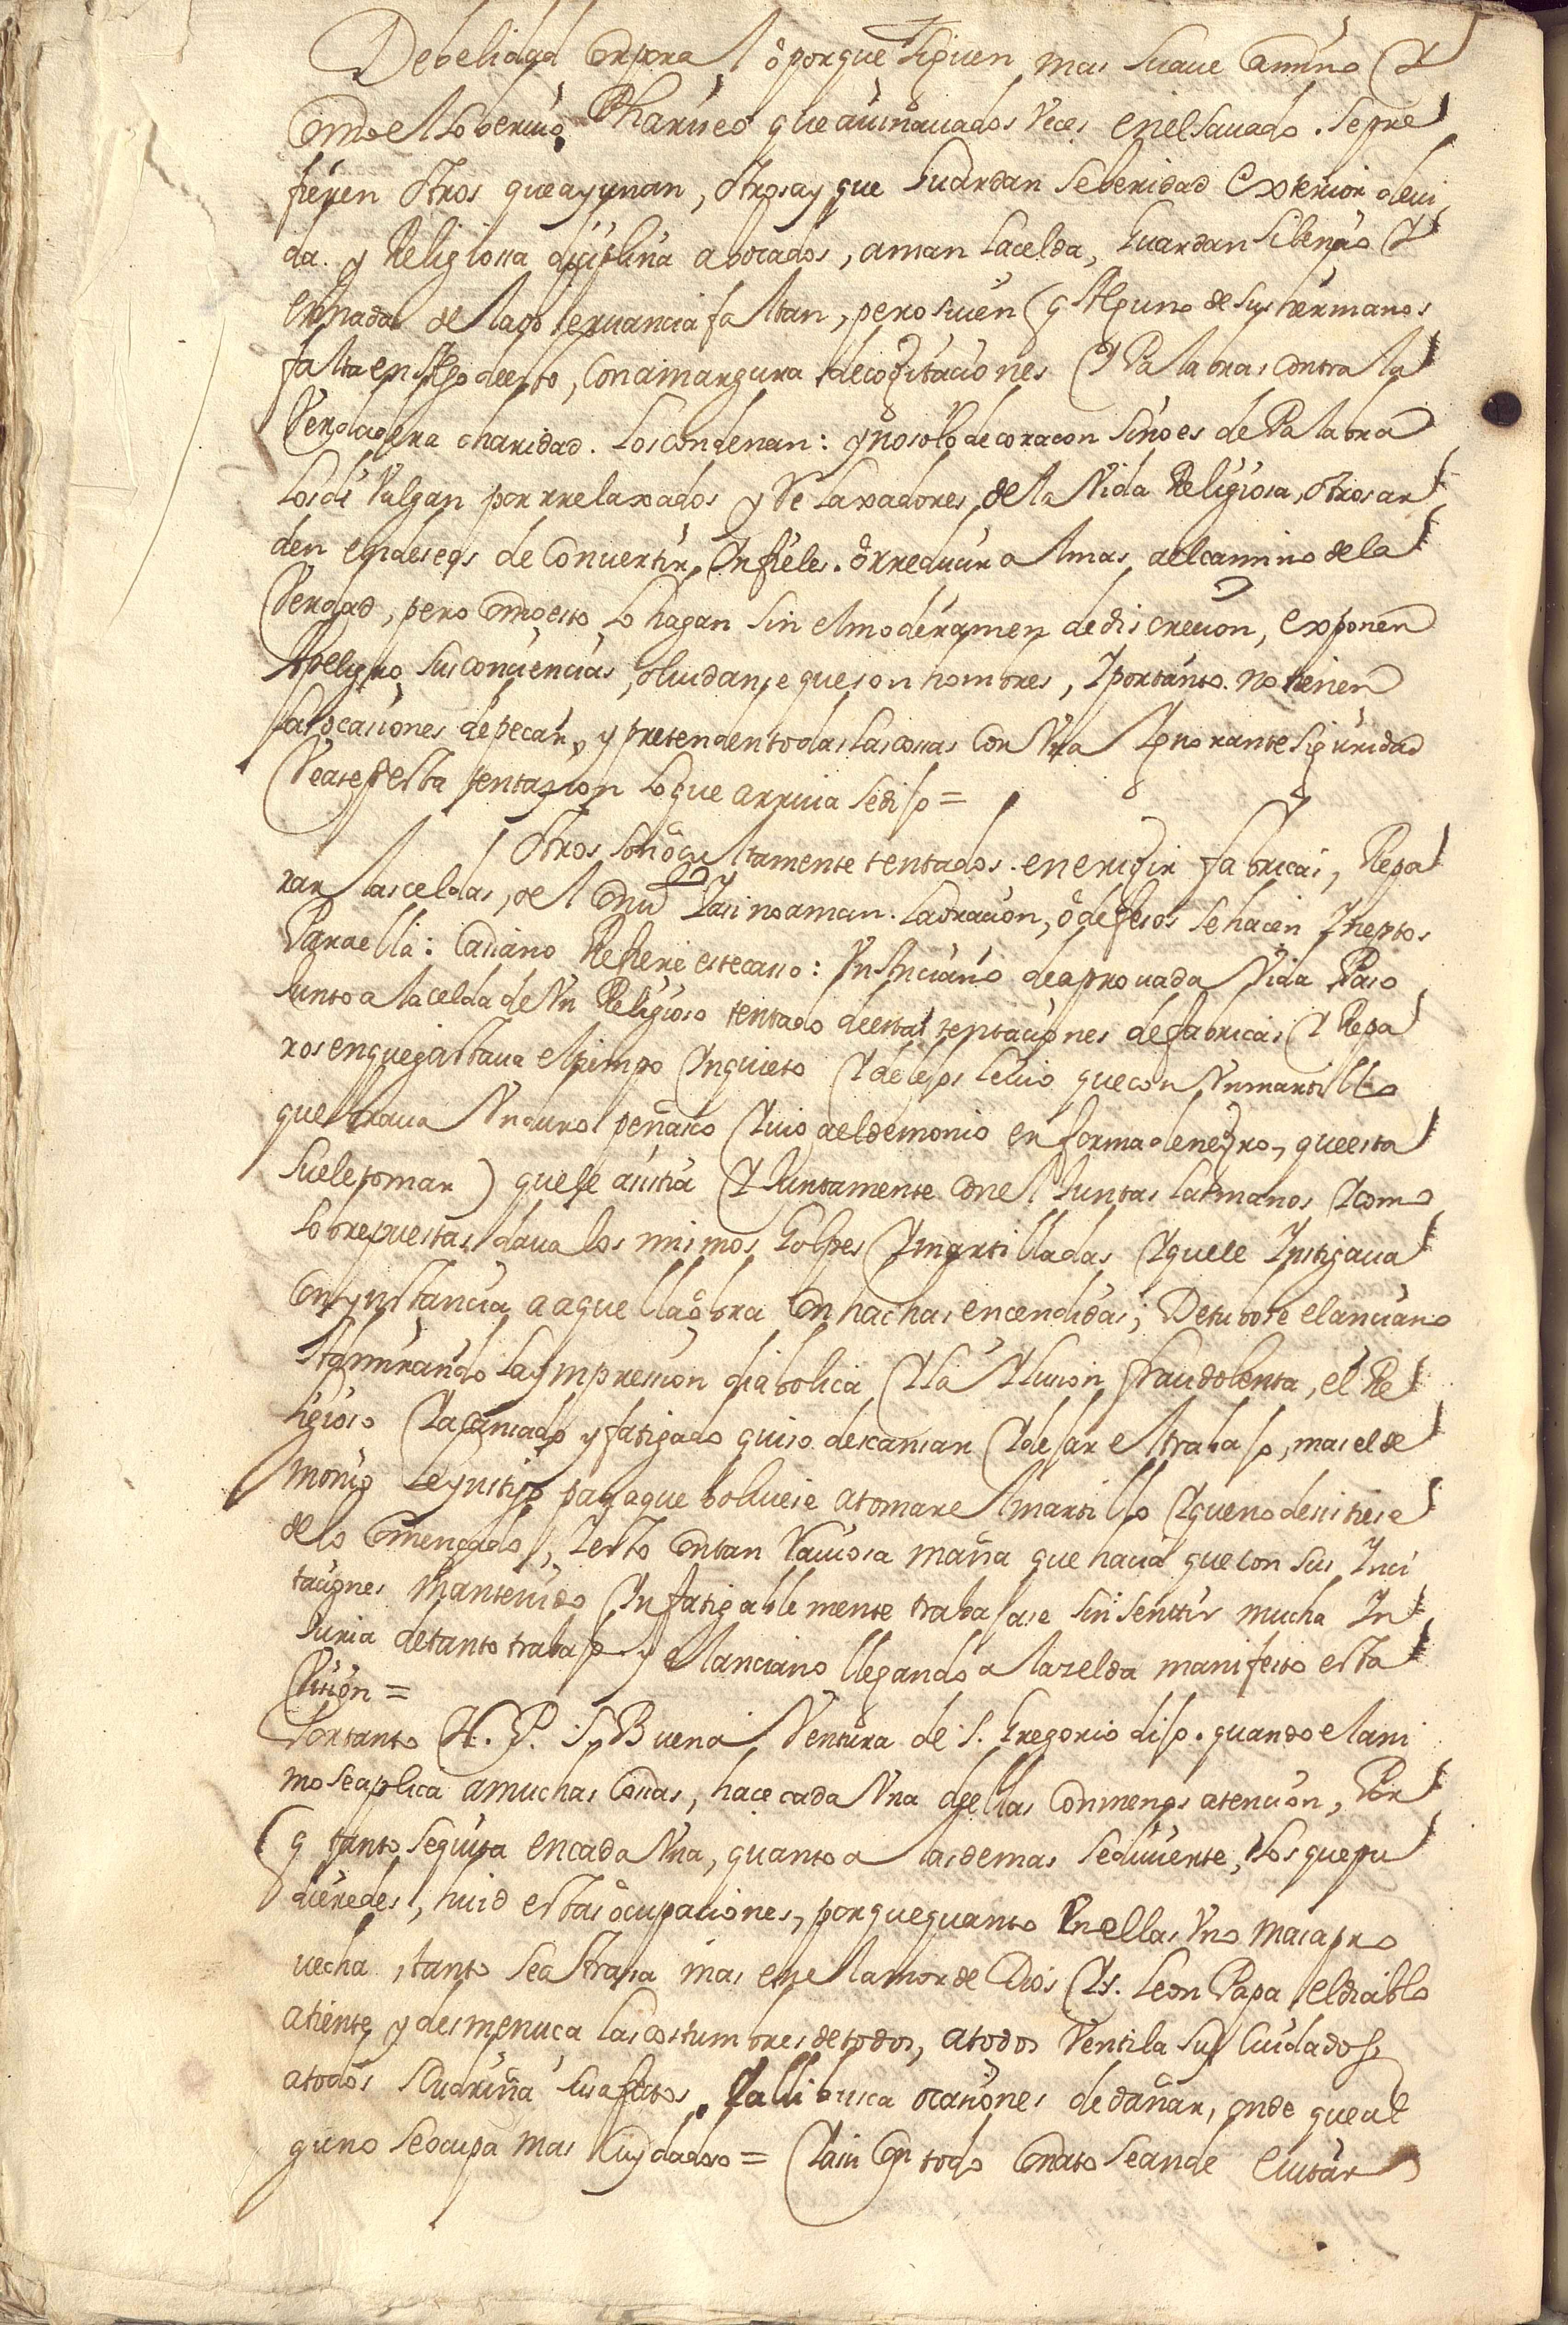 Debeliagd corpora l ò porque siguen mas suaue camino Y
Como el soberuio Phariseo que aiunaua dos veces en el sauado. Se pre
fieren otros que ayunan, otros ay que Guardan seberidad exterior deui
da. y Religiossa disiplina a bocados, aman la celda, Guardan silencio Y
en nada de la obseruancia faltan, pero si uen q Alguno de sus hermanos
falta en Algo de esto, Con amargura de cogitaciones Y Palabras contra la
Verdadera charidad. Los condenan: y no solo de coracon sino es de Palabra
Los diVulgan por rrelaxados y Relaxadores de la Vida Religiosa, otros ar
den en deseos de Convertir Infieles. ò rreducir almas al camino de la
Verdad, pero Como esto lo hagan sin el moderamen de discrecion, exponen
A peligro sus conciencias, oluidanse que son hombres, Y por tanto. no temen
las ocasiones de pecar, y pretenden todas las cosas con Vna Ignorante siguridad
Vease en esta tentazion lo que arriua se dijo =
Otros son ocultamente tentados. en erigir fabricas, Repa
rar las celdas, del Conuto Y asi no aman. la oracion, ò de secos se hacen Ineptos
Para ella: Casiano Refiere este casso: Vn Anciano de aprouada Vida Paso
Junto a la celda de Vn Religioso tentado de estas tentaciones de fabricas Y Repa
ros en que gastaua el tiempo Inquieto Y de lejos le uio que con Vn martillo
quebraua Vn duro peñasco Y uio al demonio en forma de negro, que esta
suele tomar) que le asistia Y Juntamente con el Juntas las manos Y como
sobrepuestas daua los mismos Golpes Y martilladas Y que le Instigaua
Con ynstancia a aquella obra Con hachas encendidas; Detubose el anciano
Admirando la ympression diabolica Y la Ylusion fraudolenta, el Re
ligioso Ya cansado y fatigado quiso descansar Y dejar el trabajo, mas el de
monio le ynstigo para que boluiese a tomar el martillo Y que no desistiese
de lo Comencado, Y esto Con tan maña que hacia que con sus Inci
taciones Mantenido Infatigablemente trabajase sin senttir mucha In
Juria de tanto trabajo y el anciano llegando a la zelda manifesto esta
Vision =
Portanto N. P. S. Buena Ventura de S. Gregorio dijo. quando el ani
mo se aplica a muchas Cosas, hace cada Vna de ellas Con menos atencion, Por
q tanto se quita en cada Vna, quanto a las demas se diuierte, Los que pu
dieredes, huid estas ocupaciones, porque quanto En ellas Vno mas apro
uecha, tanto se atrasa mas en el amor de Dios Y S. Leon Papa, el diablo
atiente y desmenuca las costumbres de todos, a todos Ventila sus Cuidados
a todos scudriña sus afectos. Y alli busca ocasiones de dañar, onde que al
guno se ocupa mas Cuydadoso = Y asi Con todo Conato se an de euitar